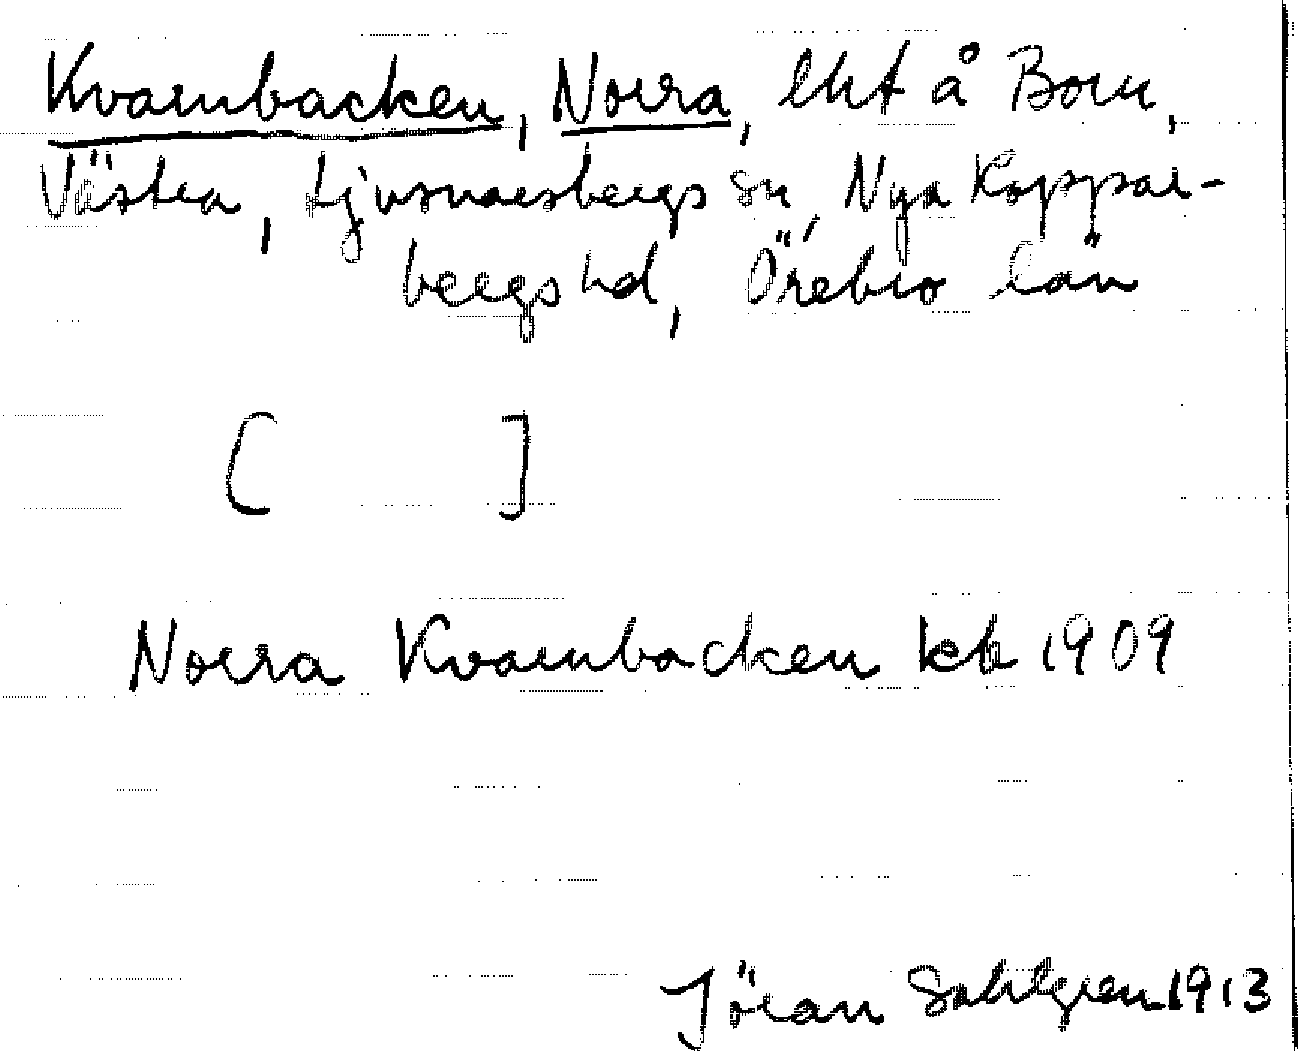 Kvarnbacken, Norra, lht å Born,
Västra, Ljusnarsbergs sn, Nya Koppar-
bergs hd, Örebro län
[ ]
Norra Kvarnbacken kb 1909
Jöran Sahlgren 1913